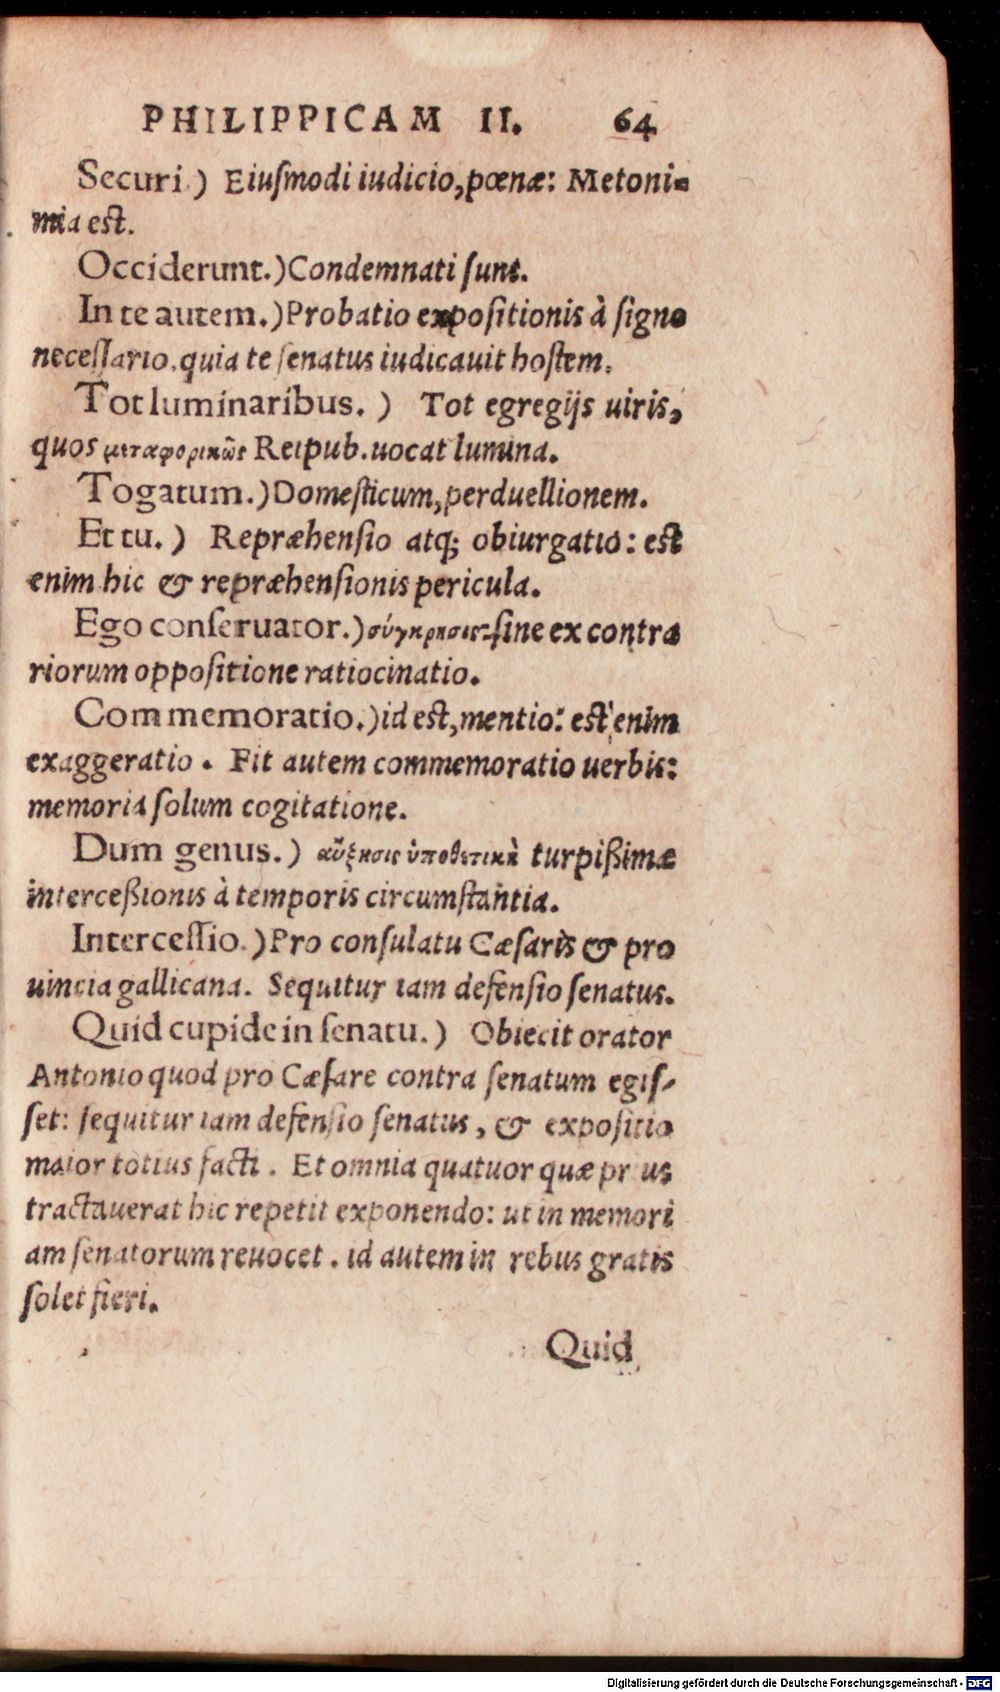 PHILIPPICAM II. 64
Securi.) Eiuſmodi iudicio, pœnæ: Metoni-
mia est.
Occiderunt.) Condemnati ſunt.
In te autem.) Probatio expoſitionis à ſigno
neceſſario. quia te ſenatus iudicauit hoſtem.
Tot luminaribus.) Tot egregijs uiris,
quos μεταφορικῶς Reipub. uocat lumina.
Togatum.) Domeſticum, perduellionem.
Et tu.) Repræhenſio atq; obiurgatio: est
enim hic & repræhenſionis pericula.
Ego conſeruator.) σύγκρισις ſine ex contra
riorum oppoſitione ratiocinatio.
Commemoratio.) id est, mentio: est enim
exaggeratio. Fit autem commemoratio uerbis:
memoria ſolum cogitatione.
Dum genus.) αὔξησις ὑποθετικὴ turpißimæ
interceßionis à temporis circumſtantia.
Interceſſio.) Pro conſulatu Cæſaris & pro
uincia gallicana. Sequitur iam defenſio ſenatus.
Quid cupide in ſenatu.) Obiecit orator
Antonio quod pro Cæſare contra ſenatum egiſ-
ſet: ſequitur iam defenſio ſenatus, & expoſitio
maior totius facti. Et omnia quatuor quæ prius
tractauerat hic repetit exponendo: ut in memori
am ſenatorum reuocet. id autem in rebus gratis
ſolet fieri.
Quid
Digitalisierung gefördert durch die Deutsche Forschungsgemeinschaft - DFG